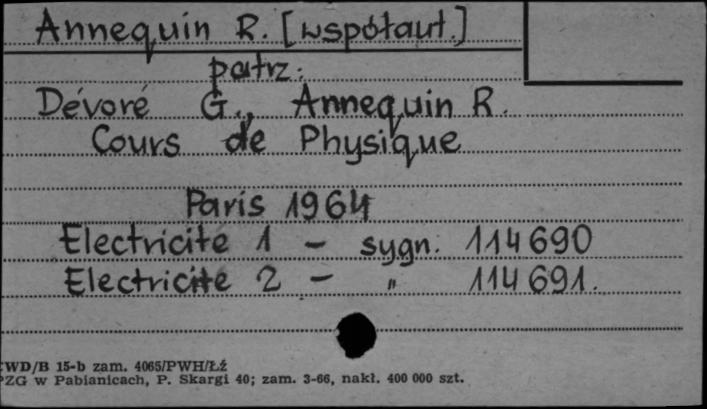 Annequin R. [współaut.]
patrz:
Dévoré G., Annequin R.
Cours de Physique
Paris 1964
Electricite 1 - sygn. 114690
Electricite 2 - " 114691.
WD/B 15-b zam. 4065/PWH/Łź
PZG w Pabianicach, P. Skargi 40; zam. 3-66, nakł. 400 000 szt.